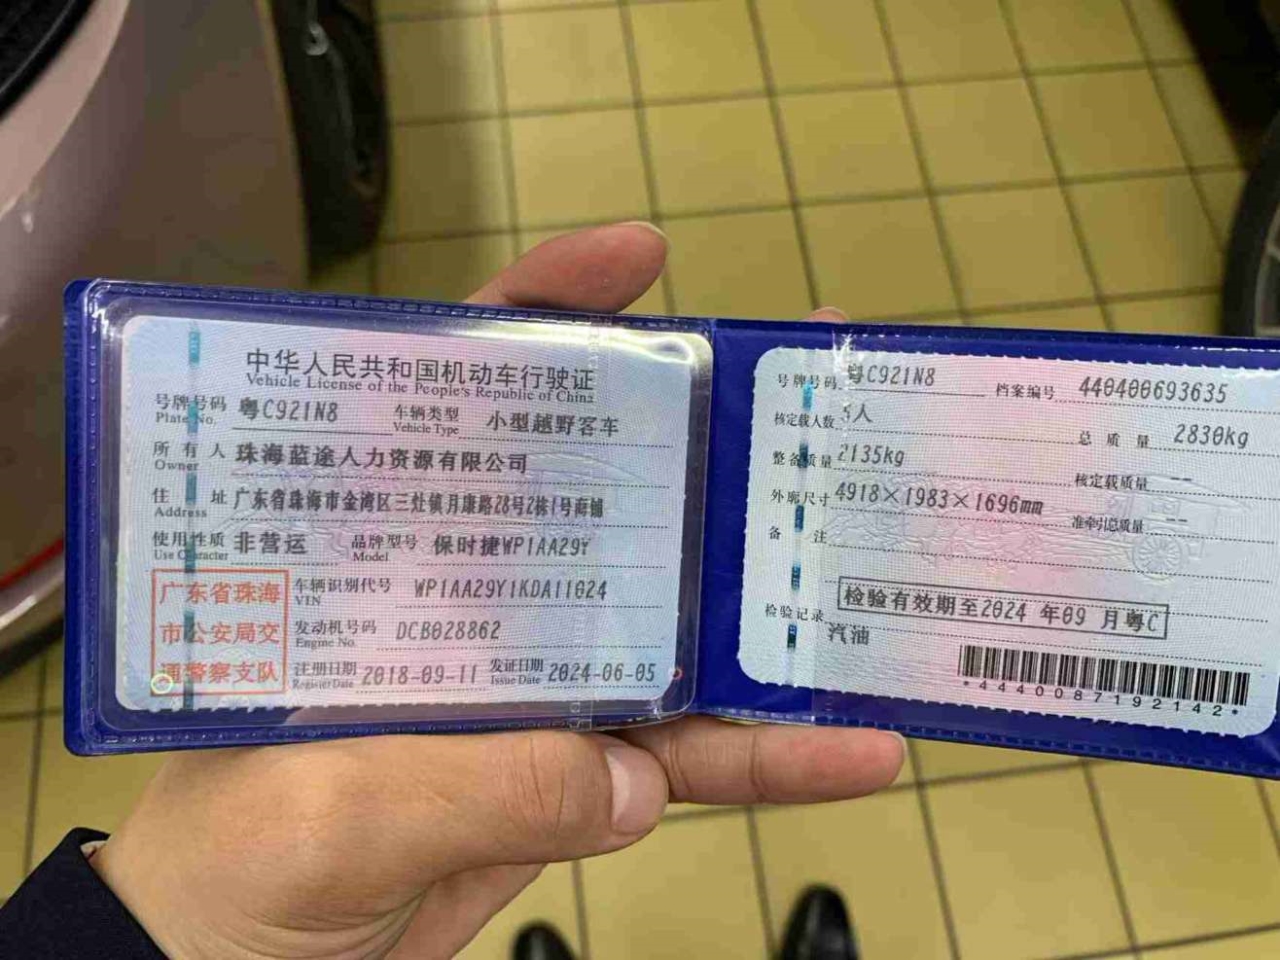 中华人民共和国机动车行驶证
Vehicle License of the People's Republic of China
号牌号码 粤C921N8 车辆类型 小型越野客车
Plate No. Vehicle Type
所有人 珠海蓝途人力资源有限公司
Owner
住址 广东省珠海市金湾区三灶镇月康路28号2栋1号商铺
Address
使用性质 非营运 品牌型号 保时捷WP1AA29Y
Use Character Model
广东省珠海
市公安局交
通警察支队
车辆识别代号 WP1AA29Y1KDA11024
VIN
发动机号码 DCB028862
Engine No.
注册日期 2018-09-11 发证日期 2024-06-05
Register Date Issue Date
号牌号码 粤C921N8 档案编号 440400693635
核定载人数 5人 总质量 2830kg
整备质量 2135kg 核定载质量 --
外廓尺寸 4918×1983×1696mm 准牵引总质量 --
备注
检验记录 检验有效期至2024年09月粤C
汽油
*4440087192142*